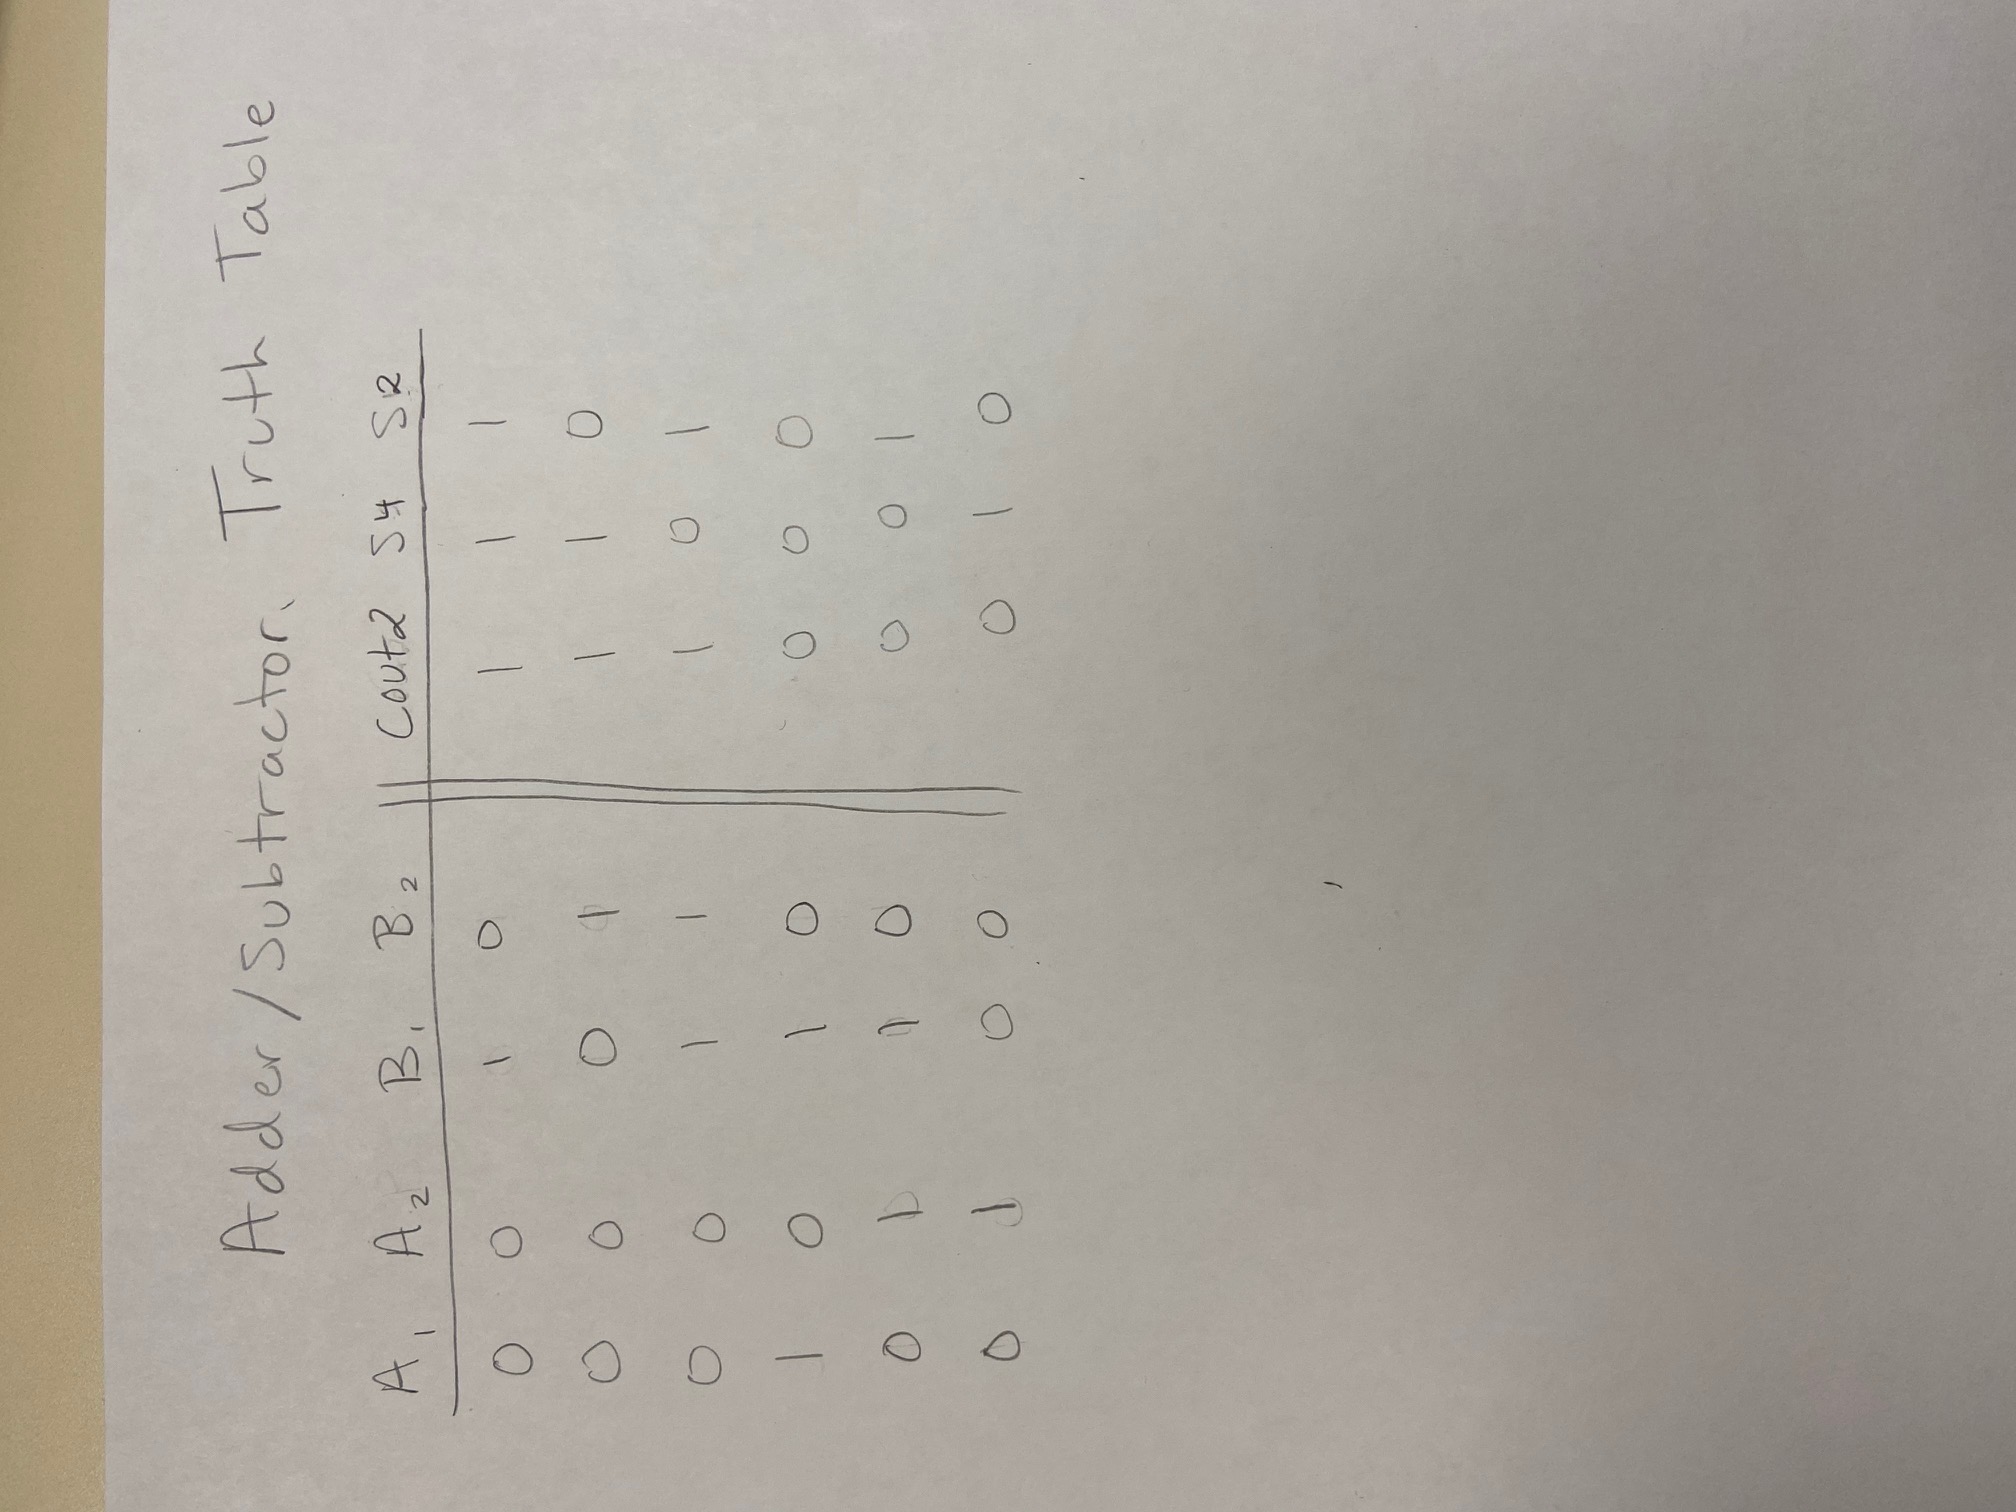 Adder/Subtractor. Truth Table
A1 A2 B1 B2 Cout2 S4 S2
0 0 1 0 1 1 1
0 0 0 1 1 1 0
0 0 1 1 1 0 1
1 0 1 0 0 0 0
0 1 1 0 0 0 1
0 1 0 0 0 1 0